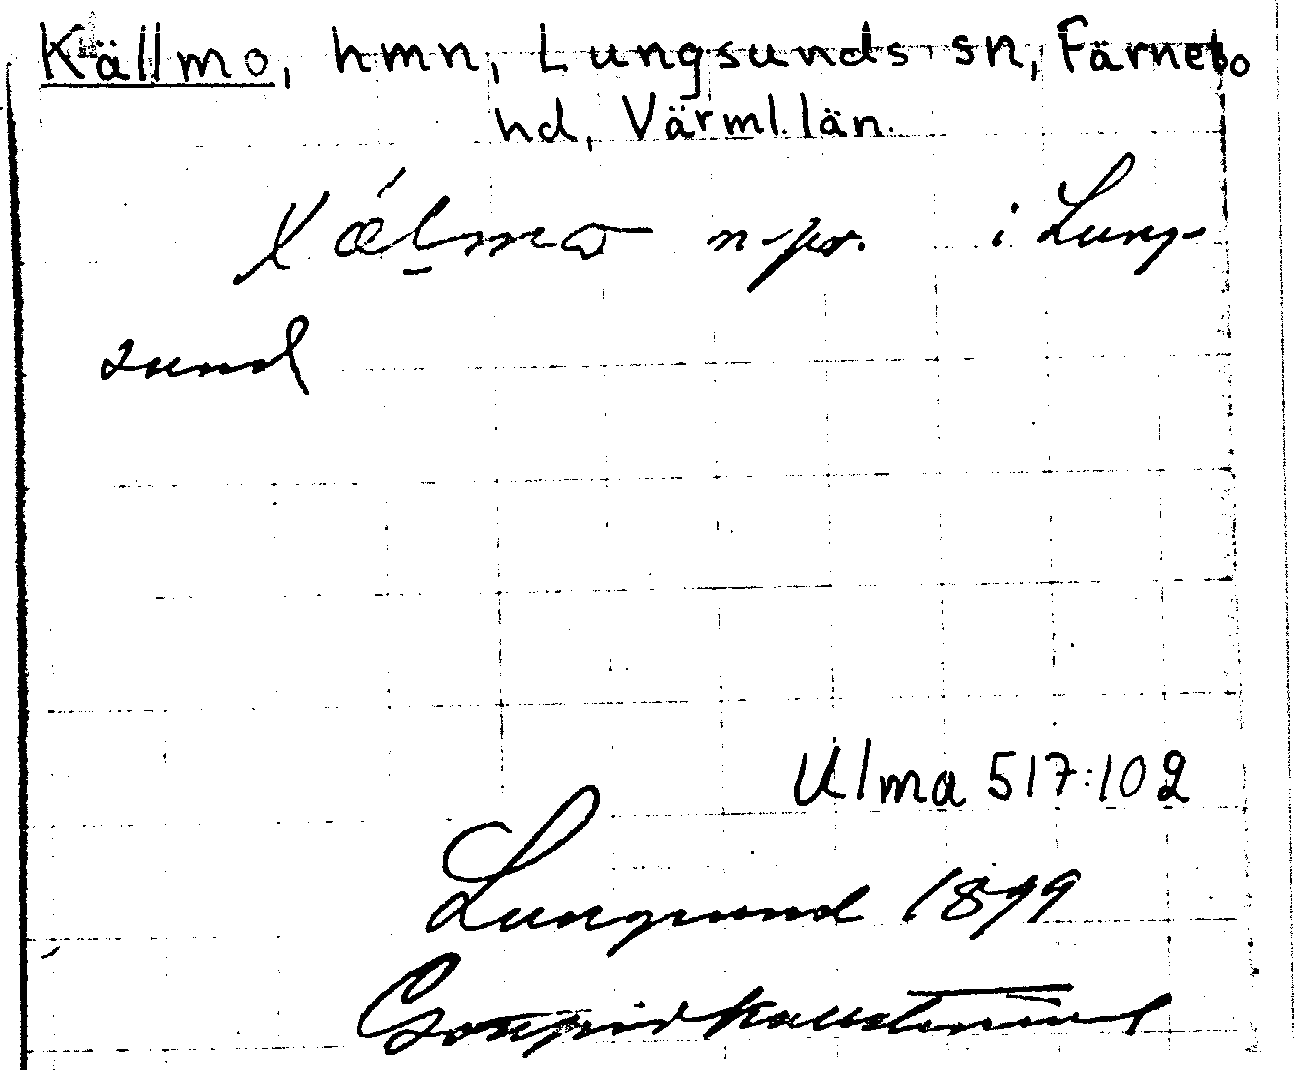 Källmo, hmn, Lungsunds sn, Färnebo
hd, Värml. län.
n. pr. i Lung-
sund
Ulma 517:102
Lungsund 1899
Gottfrid Kallstenius